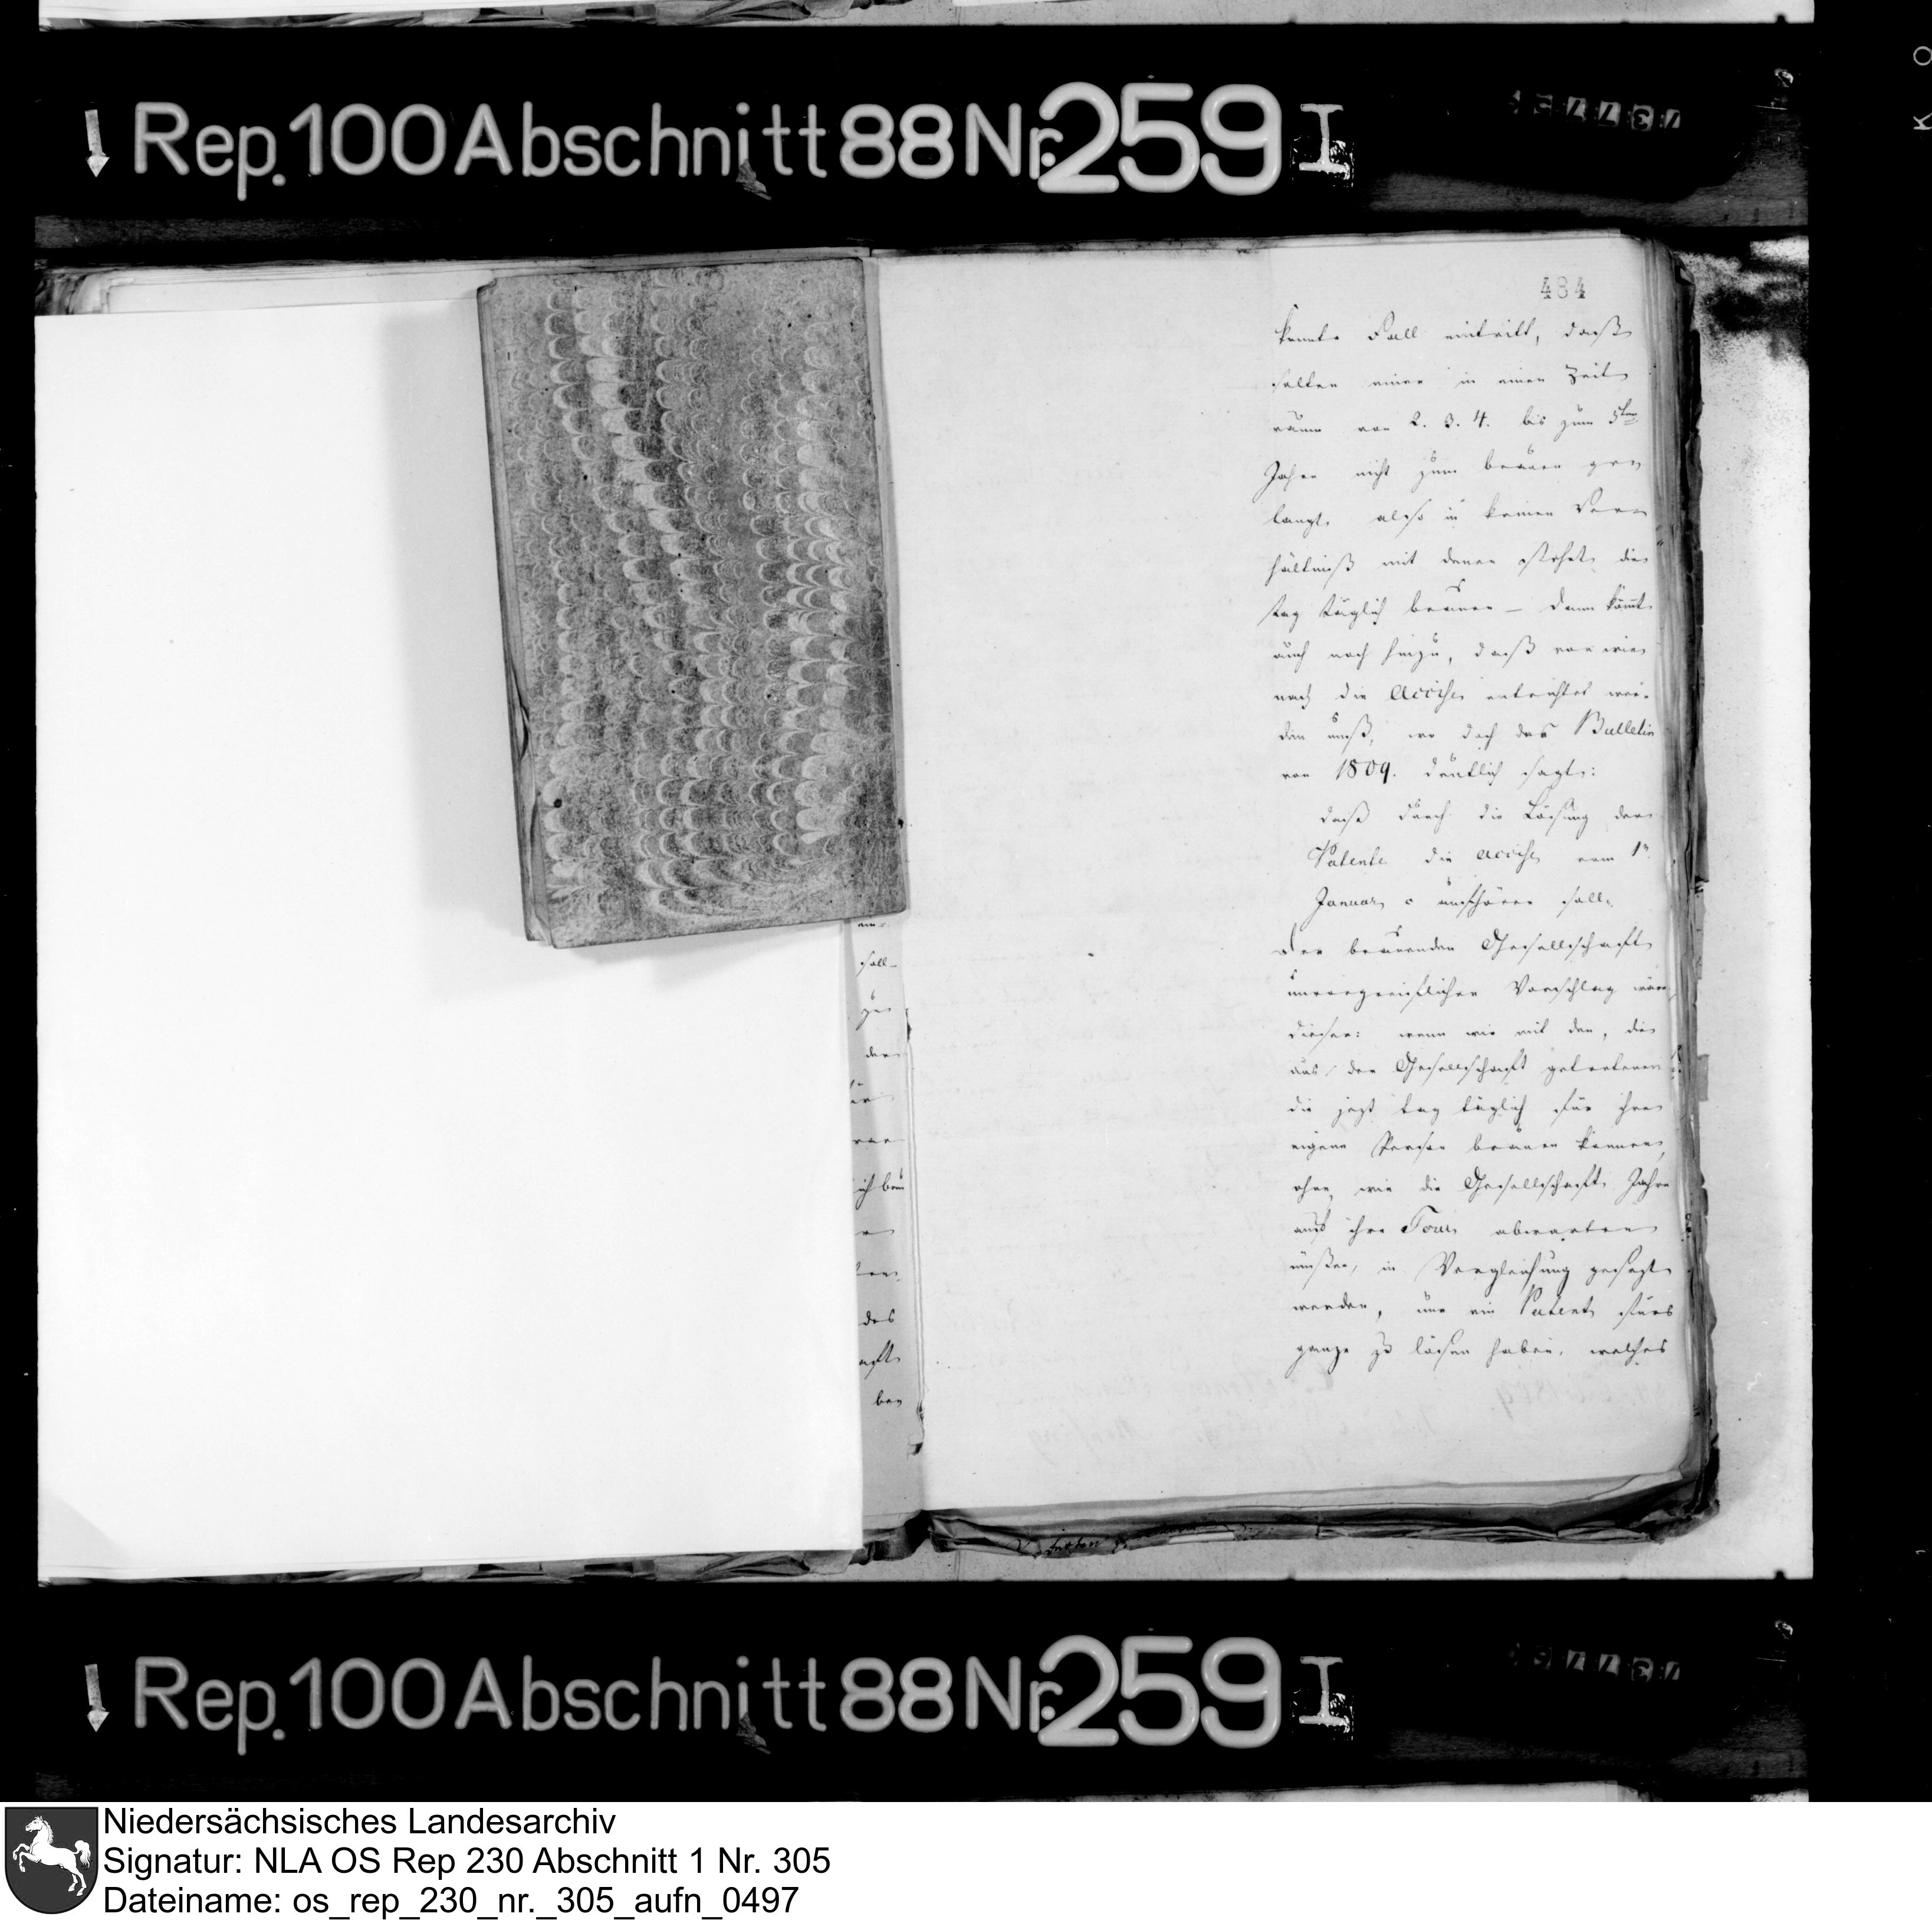 Rep. 100 Abschnitt 88 Nr. 259 I
484
kennte Fall eintritt, daß
selten einer in einen Zeit
raume von 2. 3. 4. bis zum 5ten
Jahre nicht zum brauen ge
langt, also in keinen Ver
hältniß mit denen stehet, die
tag täglich brauen – dann kömt
auch noch hinzu, daß von wie
nach die Accise entrichtet wer-
den muß, wo doch das Bulletin
von 1809. deutlich sagt:
daß durch die Lösung der
Patente die accise vom 1n
Januar c aufhören soll.
Der brauenden Gesellschaft
unvorgreiflicher Vorschlag wäre
dieser: wenn wir mit den, die
aus der Gesellschaft getretenen
die jezt tag täglich für ihre
eigene Person brauen können,
ohne wie die Gesellschaft Jahre
auf ihre Tour abwarten
müßen, in Vergleichung gesezt
werden, nur ein Patent fürs
ganze zu lösen haben, welches
soll-
zu
der
ich brau
des
ben
Rep. 100 Abschnitt 88 Nr. 259 I
Niedersächsisches Landesarchiv
Signatur: NLA OS Rep 230 Abschnitt 1 Nr. 305
Dateiname: os_rep_230_nr._305_aufn_0497